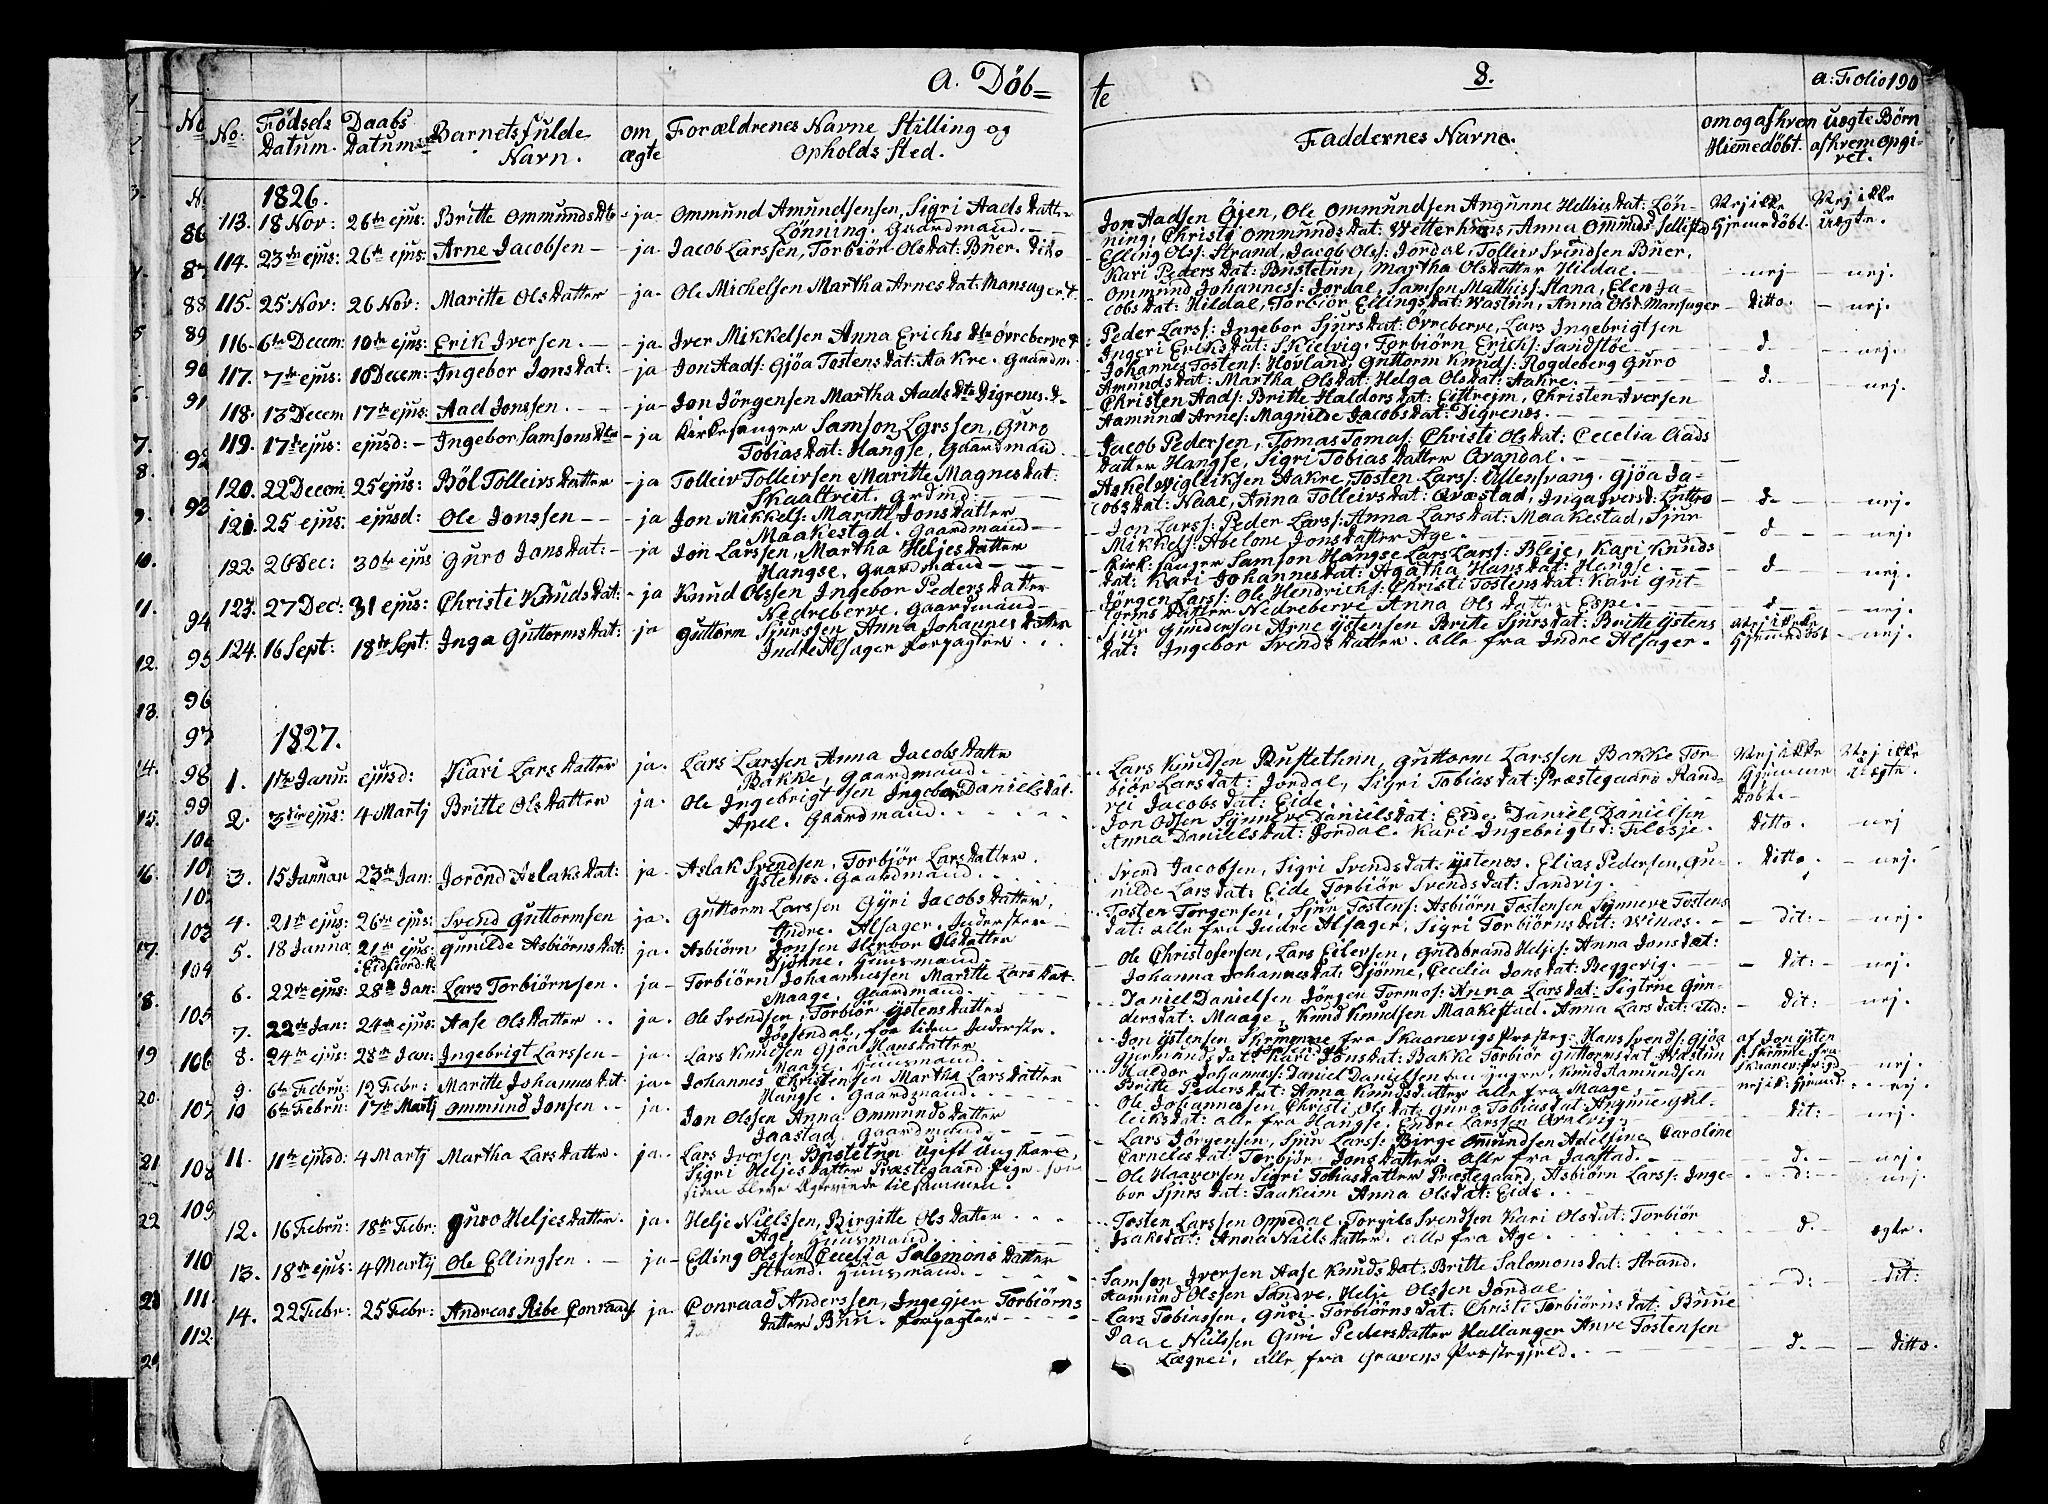 a. Döb=
te
8.
a: Folio 190
No
No:
Fødsels Datum.
Daabs Datum:
Barnets fulde Navn.
om ægte
Forældrenes Navne Stilling og Opholds Sted.
Faddernes Navne.
om og af hvem Hiemmedöbt.
uægte Börn af hvem opgivet.
1826.
113. 18 Nov: 26de ejus: Britte Ommunds Dtr - ja - Ommund Amundsensen, Sigri Aads Datter
Lönning. Gaardmand.
Jon Aadsen Öjen, Ole Ommundsen Angunne Helliesdat: Lön-
ning, Christi Ommundsdat: Wetterhuus, Anna Ommunds:
Nej ikke Hjemedöbt.
Nej ikke Uægte.
114. 23de ejus: 26de ejus: Arne Jacobsen - ja - Jacob Larssen, Torbiör Olsdat: Buer. dito
Elling Ols: Strand, Jacob Olss: Jordal, Tolleiv Svendsen Buer,
Kari Peders Dat: Bustetun, Martha Olsdatter Hildal. - nej - nej.
115. 25 Nov: 26 Nov: Maritte Olsdatter - ja - Ole Michelsen Martha Arnesdat: Mansager
Ommund Johanness: Jordal, Samson Mathiss:
cobsdat: Hildal, Torbiör Ellingsdat: Anna Olsd: Mansager - Ditto: - nej.
116. 6te Decem: 10de ejus: Erik Iversen. - ja. Iver Mikkelsen Anna Erichs Dtr Övreberve
Peder Larss: Ingebor Sjursdat: Övreberve, Lars Ingebrigtsen
Ingeri Eriksdat: Skielvig. Torbiörn Erichs: Sandstöe - d - nej.
117. 7de ejus: 10 Decem: Ingebor Jonsdat: - ja Jon Aads: Gjöa Tostensdat: Aakre. Gaardm
Johannes Tostens: Hovland, Guttorm Knuds: Rogdeberg Guro
Amundsdat: Martha Olsdat: Helga Olsdat: Aakre. - d. - nej.
118. 13 Decem 17de ejus: Aad Jonssen. - ja - Jon Jörgensen Martha Aads Dtr Digrenes. d.
Christen Aads: Britte Haldorsdat: Eittrejm, Christen Iversen
Aamund Arnes: Magnilde Jacobsdat: Digrenes.
119. 17de ejus: ejusd: - Ingebor Samsons Dtr - ja Kirkesanger Samson Larssen, Guro
Tobiasdat: Hangse, Gaardmand
Jacob Pedersen, Tomas Tomas: Christi Olsdat: Cecelia Aads
datter Hangse, Sigri Tobiasdatter Arandal.
120. 22 Decem 25 ejus: Böl Tolleivsdatter - ja Tolleiv Tolleivsen Maritte Magnesdat:
Skaaltveit. Grdmd:
Askel Vigliksen Aakre, Tosten Larss: Ullensvang. Gjöa Ja-
cobsdat: Naae, Anna Tolleivsdat: Qvæstad, - d. - nej.
121. 25 ejus: ejusd: Ole Jonssen - ja Jon Mikkels: Maritte Jonsdatter
Maakestad. Gaardmand
Jon Larss: Peder Larss: Anna Larsdat: Maakestad, Sjur
Mikkels: Abelone Jonsdatter Age. - d - nej.
122. 26 Dec: 30te ejus Guro Jonsdat: - ja Jon Larssen, Martha Heljesdatter
Hangse. Gaardmand
Kirk: sanger Samson Hangse Lars Larss: Bleje, Kari Knuds
dat: Kari Johannesdat: Agatha Hansdat: Hangse. - d - nej.
123. 27 Dec: 31 ejus: Christi Knudsdat: - ja Knud Olssen Ingebor Pedersdatter
Nedreberve. Gaardmand
Jörgen Larss: Ole Hendrichs: Christi Tostensdat: Kari Gut-
torms datter Nedreberve Anna Olsdatter Espe. - d - nej.
124. 16 Sept: 18de Sept: Inga Guttormsdat: ja Guttorm Sjurssen Anna Johannes datter
Indre Alsager Forpagter.
Sjur Gundersen Arne Ystensen Britte Sjursdat: Britte Ystens
dat: Ingebor Svendsdatter. Alle fra Indre Alsager. Nej ikke Hjemmedöbt - nej.
1827.
1. 1te Janu: ejusd: Kari Larsdatter ja. Lars Larssen Anna Jacobsdatter
Bakke, Gaardmand.
Lars Knudsen Bustethun, Guttorm Larssen Bakke Tor-
biör Larsdat: Jordal, Sigri Tobiasdat: Præstegaard Rand-
vei Jacobsdat: Eide. Nej ikke Hjemmedöbt. Nej ikke Uægte.
2. 3die ejus: 4 Martj Britte Olsdatter ja. Ole Ingebrigtsen Ingebor Danielsdat.
Apel. Gaardmand.
Jon Odsen Synneve Danielsdat: Eide. Daniel Danielsen
Anna Danielsdat: Jordal. Kari Ingebrigtsd: Flesje. Ditto. nej
3. 15 Januar 23de Jan: Jorönd Aslaksdat: ja. Aslak Svendsen, Torbjör Larsdatter.
Ystenes. Gaardmand.
Svend Jacobsen, Sigri Svendsdat: Ystenes. Elias Pedersen, Gu-
nilde Larsdat: Eide Torbiör Svendsdat: Sandvig. Ditto. - nej.
4. 21de ejus: 26de ejus: Svend Guttormsen ja. Guttorm Larssen Gyri Jacobsdatter,
Indre Alsager, Inderster
Tosten Torgersen, Sjur Tostens: Asbiörn Tostensen Synneve Tostens
dat: alle fra Indre Alsager, Sigri Torbiörnsdat: Winæs. - dit: - nej.
5. 18 Janua 21de ejus: i Eidfiord K Gunilde Asbiörnsdat: ja. Asbiörn Jonsen Herbor Olsdatter
Djönne, Huusmand
Ole Christofersen, Lars Eilersen, Guldbrand Heljes: Anna Jonsdat:
Johanna Johannesdat: Djönne, Cecelia Jonsdat: Beggevig. - dit: - nej.
6. 22de ejus: 28de Jan: Lars Torbiörnsen. ja - Torbiörn Johannessen Maritte Larsdat
Maage. Gaardmand.
Daniel Danielsen Jörgen Tormos: Anna Larsdat: Sigtrue Gun-
dersdat: Maage, Knud Knudsen Maakestad. Anna Larsdat: - dit: nej.
7. 22de Jan: 24de ejus: Aase Olsdatter ja. Ole Svendsen, Torbiör Ystensdatter
Jössendal, for tiden Inderste.
8. 24de ejus: 28de Jan: Ingebrigt Larssen - ja. Lars Knudsen Gjöa Hansdatter
Maage. Huusmand.
Jon Ystensen Skimme fra Skaanevigs Præsteg: Hans Svends: Gjöa
af Jon Ysten - nej.
9. 6te Febru: 12 Febr: Maritte Johannesdat: ja. Johannes Christensen Martha Larsdatter
Hangse. Gaardmand.
Haldor Johannes: Daniel Danielsen den Yngre, Knud Aamundsen
Britte Pedersdat: Anna Knudsdatter alle fra Maage. nej ik: hjemd: - nej.
10 6te Febru: 17de Martj Ommund Jonsen. ja. Jon Olssen Anna Ommundsdatter
Jaastad. Gaardmand.
Ole Johannessen Christi Olsdat: Guro Tobiasdat: Angunne
leiksdat: alle fra Hangse. Endre Larssen - dit: - nej.
11. 11te ejusd: 4 Martj Martha Larsdatter. ja. Lars Iversen Bustetun Ugift Ung Karl,
Sigri Heljesdatter Præstegaard Pige - som
siden bleve Egteviede tilsammen.
Lars Jörgensen, Sjur Larss: Birge Omundsen Adelsine Caroline
Carnelesdat: Torbjör Jonsdatter. alle fra Jaastad. - d. - nej.
Ole Haaversen Sigri Tobiasdatter Præstegaard, Asbiörn Larss: Inge-
bor Sjursdat: Taakeim Anna Olsdat: Eide. d: nej.
12. 16 Febru: 18de Febr: Guro Heljesdatter. ja. Helje Nielssen, Birgitte Olsdatter
Age, Huusmand
Tosten Larssen Oppedal, Torgils Svendsen Kari Olsdat: Torbiör
Isaksdat: Anna Nielsdatter. alle fra Age. d. - ægte.
13. 18de ejus: 4 Martij Ole Ellingsen. ja - Elling Olssen Cecelia Salomonsdatter
Strand. Huusmand.
Samson Iversen Aase Knudsdat: Britte Salomonsdat: Strand.
Aamund Olssen Sandre, Helje Olssen Jordal. d: - dit:
14. 22 Febr: 25 Febr: Andreas Ribe Conraads ja. Conraad Anderssen, Ingegjer Torbiörns
datter Bun. Forpagter
Lars Tobiassen, Guri Torbiörnsdat: Christi Torbiörnsdat: Buue
Paae Nielssen Guri Pedersdatter Hallanger Anve Tostensen
Lægrei, alle fra Gravens Præstegjeld. d. - ditto.
86
87
88
89
90
91
92
93
94
95
96
97
98
99
100
101
102
103
104
105
106
107
108
109
110
111.
112.